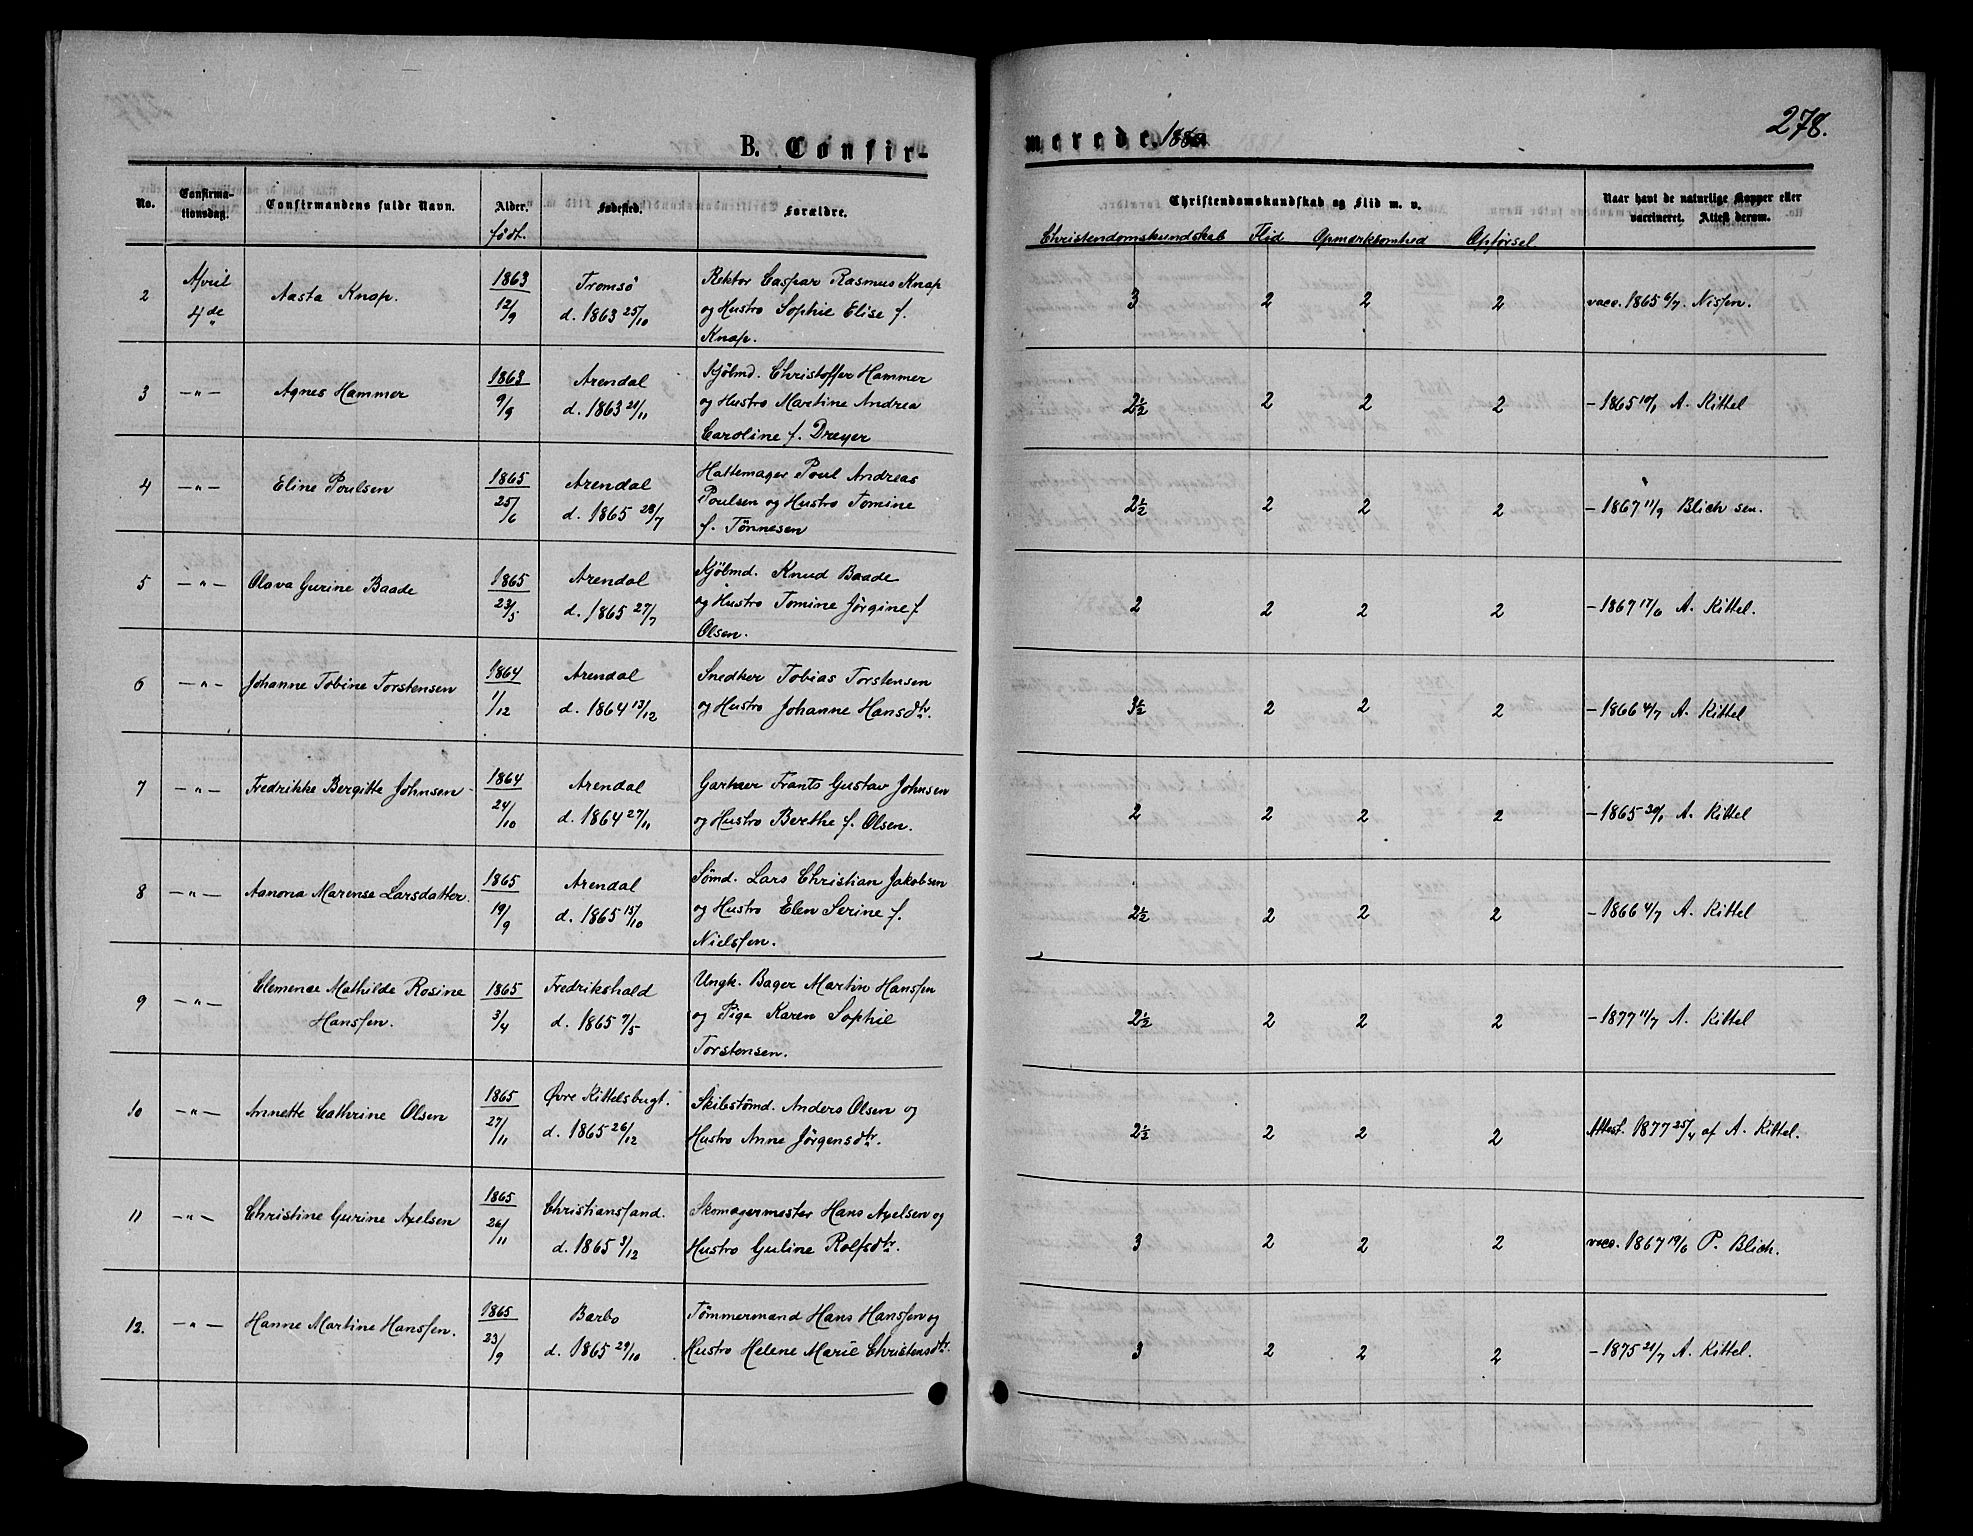 278.
B. Confirmerede. 1880
No. Confirmationsdag. Confirmandens fulde Navn. Alder. født. Fødested. Forældre. Christendomskundskab og Flid m. v. Naar havt de naturlige Kopper eller vaccineret. Attest derom.
Christendomskundskab Flid Opmærksomhed Opførsel
2 April 4de Aasta Knap. 1863 12/9 Tromsö d. 1863 25/10 Rektor Caspar Rasmus Knap og Hustro Sophie Elise f. Knap. 3 2 2 2 vacc. 1865 6/7. Nissen.
3 —"— Agnes Hammer 1863 9/9 Arendal d. 1863 21/11 Kjölmd. Christoffer Hammer og Hustro Martine Andrea Caroline f. Dreyer 2½ 2 2 2 — 1865 10/1 A. Kittel
4 —"— Eline Poulsen 1865 25/6 Arendal d. 1865 28/7 Hattemager Poul Andreas Poulsen og Hustro Tomine f. Tönnesen 2½ 2 2 2 — 1867 11/9 Blich sen.
5 —"— Olava Gurine Baade 1865 23/5 Arendal d. 1865 27/7 Kjölmd. Knud Baade og Hustro Tomine Jörgine f. Olsen. 2 2 2 2 — 1867 17/6 A. Kittel.
6 —"— Johanne Tobine Torstensen 1864 1/12 Arendal d. 1864 13/12 Snedker Tobias Torstensen og Hustro Johanne Hansdtr. 3½ 2 2 2 — 1866 4/7 A. Kittel
7 —"— Fredrikke Bergitte Johnsen 1864 24/10 Arendal d. 1864 27/11 Garhver Frants Gustav Johnsen og Hustro Berthe f. Olsen. 2 2 2 2 — 1865 30/1 A. Kittel
8 —"— Aanona Marense Larsdatter. 1865 19/9 Arendal d. 1865 15/10 Sömd. Lars Christian Jakobsen og Hustro Elen Serine f. Nielssen. 2½ 2 2 2 — 1866 4/7 A. Kittel
9 —"— Clemence Mathilde Rosine Hanssen. 1865 3/4 Fredrikshald d. 1865 7/5 Ungk. Bager Martin Hanssen og Pige Karen Sophie Torstensen. 2½ 2 2 2 — 1877 11/7 A. Kittel
10 —"— Annette Cathrine Olsen 1865 27/11 Øvre Kittelsbugt. d. 1865 26/12 Skibstömd. Anders Olsen og Hustro Anne Jörgensdtr. 2½ 2 2 2 Attest. 1877 25/4 af A. Kittel.
11 —"— Christine Gurine Axelsen 1865 26/11 Christianssand. d. 1865 3/12 Skomagermester Hans Axelsen og Hustro Guline Rolfsdtr. 3 2 2 2 vacc. 1867 19/6 P. Blich.
12. —"— Hanne Martine Hanssen. 1865 23/9 Barbo d. 1865 29/10 Tömmermand Hans Hanssen og Hustro Helene Marie Christensdtr. 3 2 2 2 — 1875 21/7 A. Kittel.